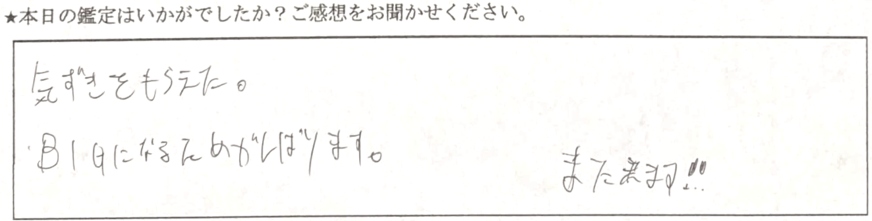 ★本日の鑑定はいかがでしたか？ご感想をお聞かせください。
気ずきをもらえた。
BIGになるためがんばります。
また来ます!!